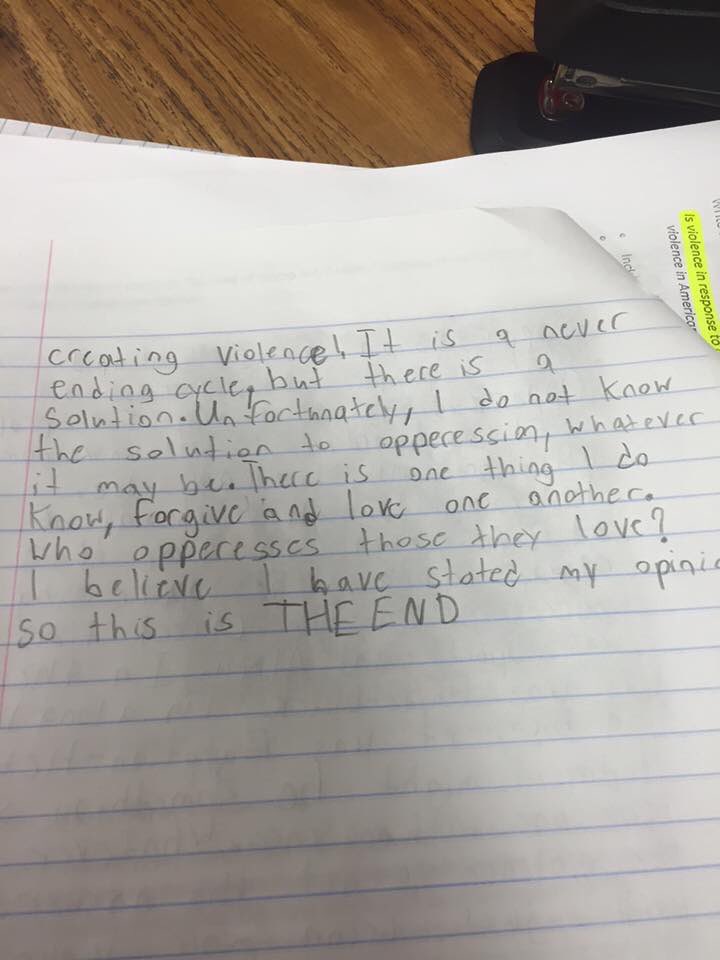 creating violence! It is a never
ending cycle, but there is a
solution. Unfortunately, I do not know
the solution to opperession, whatever
it may be. There is one thing I do
know, forgive and love one another.
Who opperesses those they love?
I believe I have stated my opinio
so this is THE END
Is violence in response to
violence in America